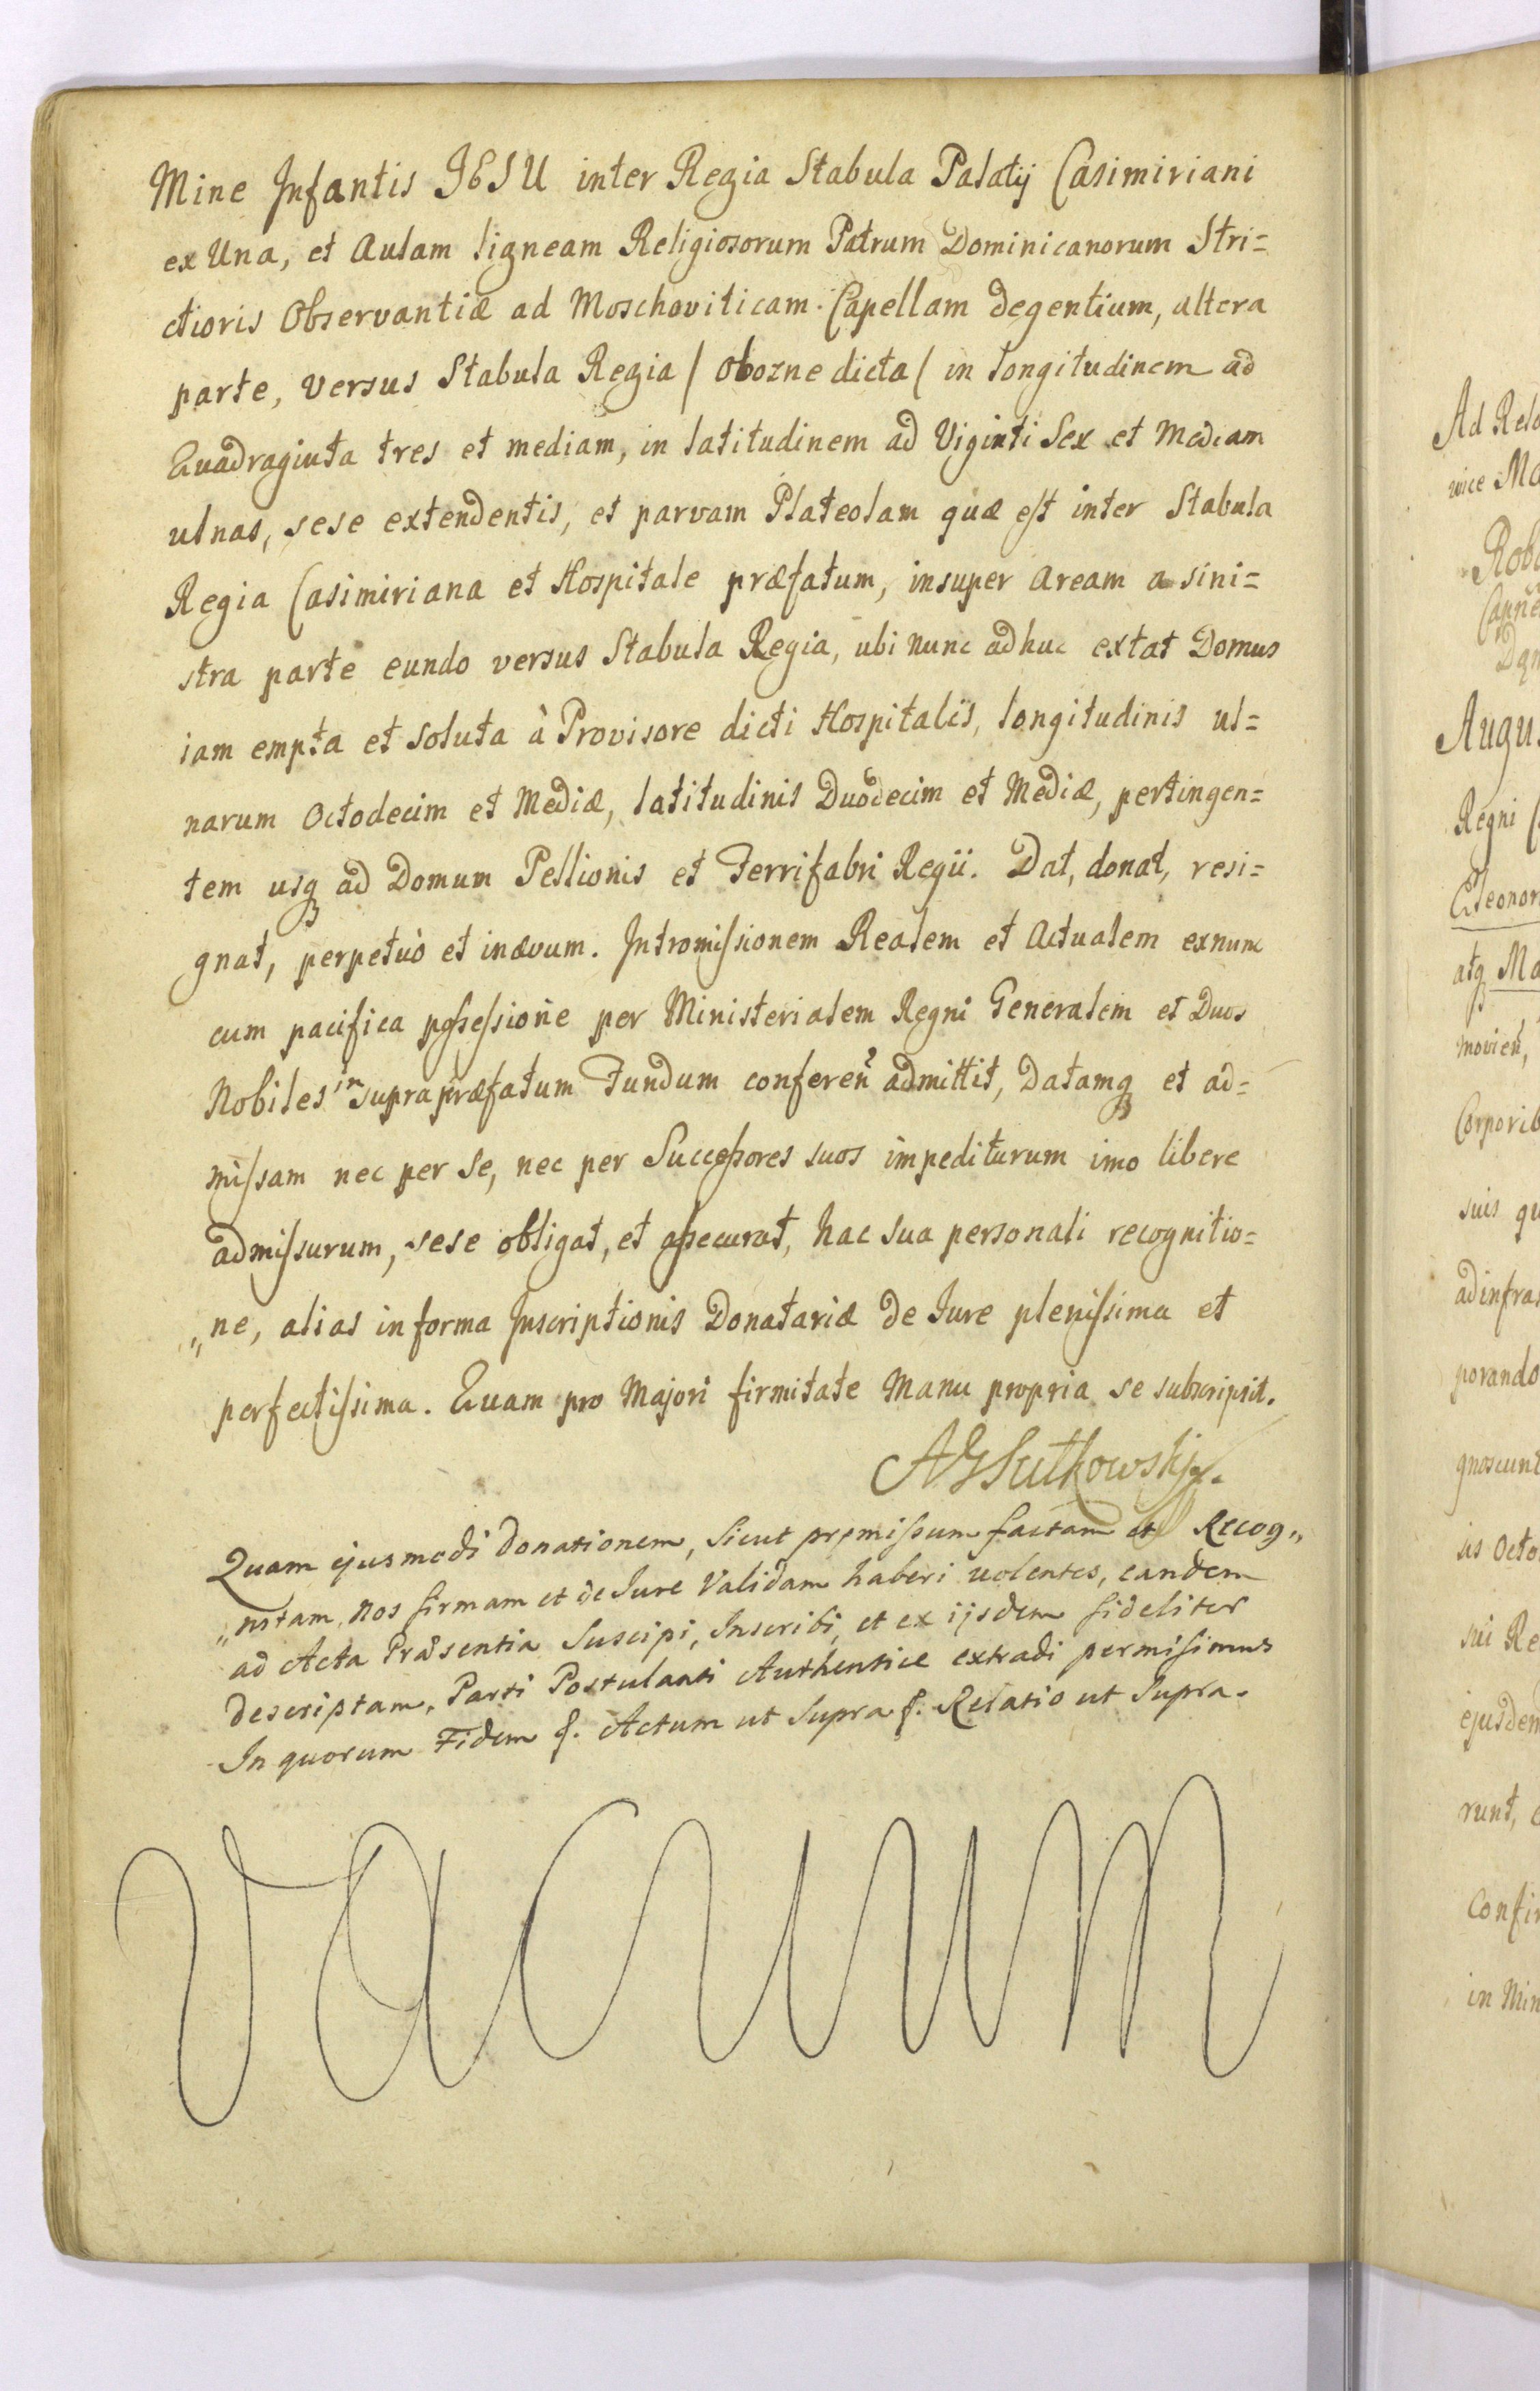 Mine Infantis JESU inter Regia Stabula Palatij Casimiriani
ex Una, et Aulam ligneam Religiosorum Patrum Dominicanorum Stri=
ctioris Observantiæ ad Moschoviticam Capellam degentium, altera
parte, versus Stabula Regia / Obozne dicta / in longitudinem ad
Quadraginta tres et mediam, in latitudinem ad Viginti Sex et Mediam
ulnas, sese extendentis, et parvam Plateolam quæ est inter Stabula
Regia Casimiriana et Hospitale præfatum, insuper Aream a sini=
stra parte eundo versus Stabula Regia, ubi nunc adhuc extat Domus
iam empta et soluta à Provisore dicti Hospitalis, longitudinis ul=
narum Octodecim et Mediæ, latitudinis Duodecim et Mediæ, pertingen=
tem usq ad Domum Pellionis et Ferrifabri Regii. Dat, donat, resi=
gnat, perpetuò et inævum. Intromissionem Realem et Actualem exnunc
cum pacifica possessione per Ministerialem Regni Generalem et Duos
Nobiles in supra præfatum Fundum conferen admittit, Datamq et ad=
missam nec per Se, nec per Successores suos impediturum imo libere
admissurum, sese obligat, et assecurat, hac sua personali recognitio=
„ne, alias in forma Inscriptionis Donatariæ de Iure plenissima et
perfectissima. Quam pro Majori firmitate Manu propria se subscripsit.
Quam ejusmodi donationem, Sicut premissum factam et Recog„
„nitam, Nos firmam et de Iure Validam haberi volentes, eandem
ad Acta Præsentia Suscipi, Inscribi, et ex ijsdem fideliter
descriptam, Parti Postulanti Authentice extradi permisimus
In quorum Fidem &. Actum ut Supra &. Relatio ut Supra.
vacuum
Ad Rela
Augus
Regni
Eleonor
atq Ma
Corporib
suis qu
ad infra
porando
gnoscunt
is Octo
sui Re
ejusdem
runt,
Confir
in Min